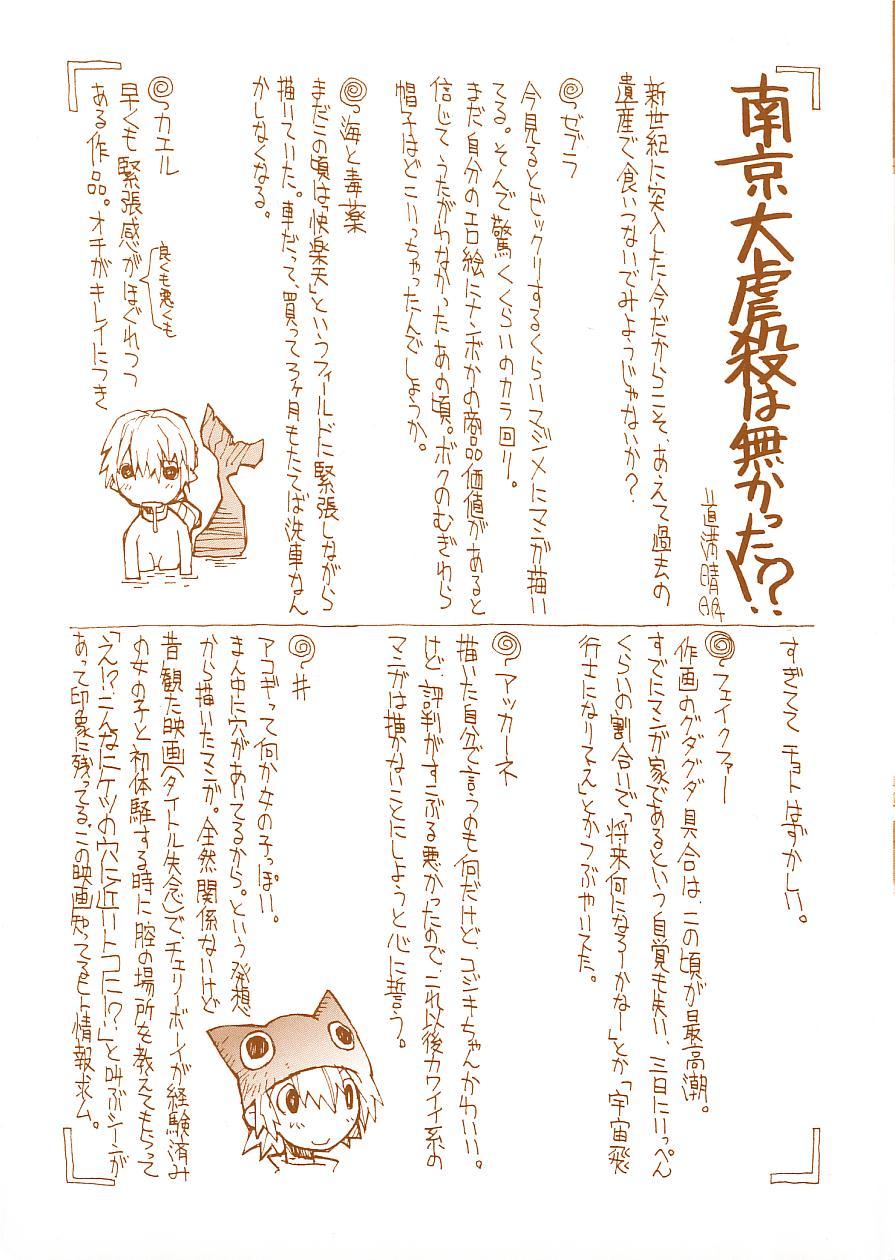 南京大虐殺は無かった!?
道満晴明
新世紀に突入した今だからこそ、あえて過去の
遺産で食いつないでみようじゃないか?
ゼブラ
今見るとビックリするくらいマジメにマンガ描い
てる。そんで驚くくらいのカラ回り。
まだ自分のエロ絵にナンボかの商品価値があると
信じてうたがわなかったあの頃。ボクのむぎわら
帽子はどこいっちゃったんでしょうか。
海と毒薬
まだこの頃は「快楽天」というフィールドに緊張しながら
描いていた。車だって、買って3ヶ月もたてば洗車なん
かしなくなる。
カエル
早くも緊張感がほぐれつつ
良くも悪くも
ある作品。オチがキレイにつき
すぎてて チョトはずかしい。
フェイクファー
作画のグダグダ具合は、この頃が最高潮。
すでにマンガ家であるという自覚も失い、三日にいっぺん
くらいの割合いで「将来何になろーかなー」とか「宇宙飛
行士になりてぇ」とかつぶやいてた。
アッカーネ
描いた自分で言うのも何だけど、コジキちゃんかわいい。
けど、評判がすこぶる悪かったので、これ以後カワイイ系の
マンガは描かないことにしようと心に誓う。
井
アコギって何か女の子っぽい。
まん中に穴があいてるから。という発想
から描いたマンガ。全然関係ないけど
昔観た映画(タイトル失念)で、チェリーボーイが経験済み
の女の子と初体験する時に腟の場所を教えてもらって
「え!?こんなにケツの穴に近いトコに!?」と叫ぶシーンが
あって印象に残ってる。この映画知ってるヒト情報求ム。